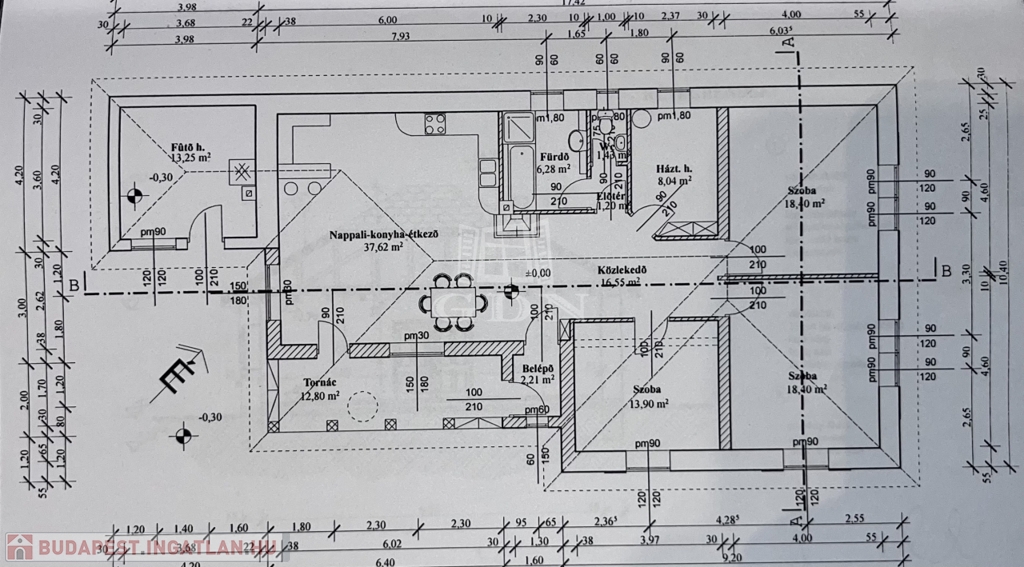 3,98 17,42
30 3,68 22 38 6,00 10 2,30 10 1,00 10 2,37 30 4,00 55
3,98 7,93 1,65 1,80 6,03⁵
A
90 60 60 60 90 60
pm1,80 pm1,80
Fűtő h.
13,25 m²
-0,30
Fürdő
6,28 m²
Házt. h.
8,04 m²
Előtér
1,20 m²
Szoba
18,40 m²
Nappali-konyha-étkező
37,62 m²
Közlekedő
16,55 m²
±0,00
GDN
pm90
120 120
100 210
90 210
90 210
100 210
pm90 90 120
pm90 90 120
B B
150 180
pm30
90 210
100 210
100 210
100 210
pm90 90 120
pm90 90 120
Tornác
12,80 m²
150 180
Belépő
2,21 m²
100 210
pm60
60 150
Szoba
13,90 m²
Szoba
18,40 m²
-0,30
É
pm90
pm90
120 120
120 120
A
4,20 3,00 2,00 1,20
30 3,60 30 2,62 38 1,70 30 65 55
4,20 1,20 1,80 1,20 80 1,20
2,65 3,30 2,65
30 25 4,60 10 4,60 55
10,40
1,20 1,40 1,60 1,80 2,30 2,30 95 65 2,36⁵ 4,28⁵ 2,55
30 3,68 22 38 6,02 30 1,30 38 3,97 30 4,00 55
4,20 6,40 1,60 9,20
BUDAPEST.INGATLAN.HU